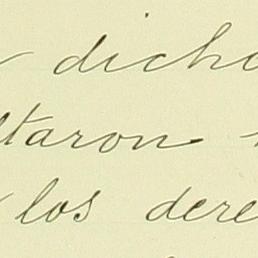 dicho
ltaron
los dere